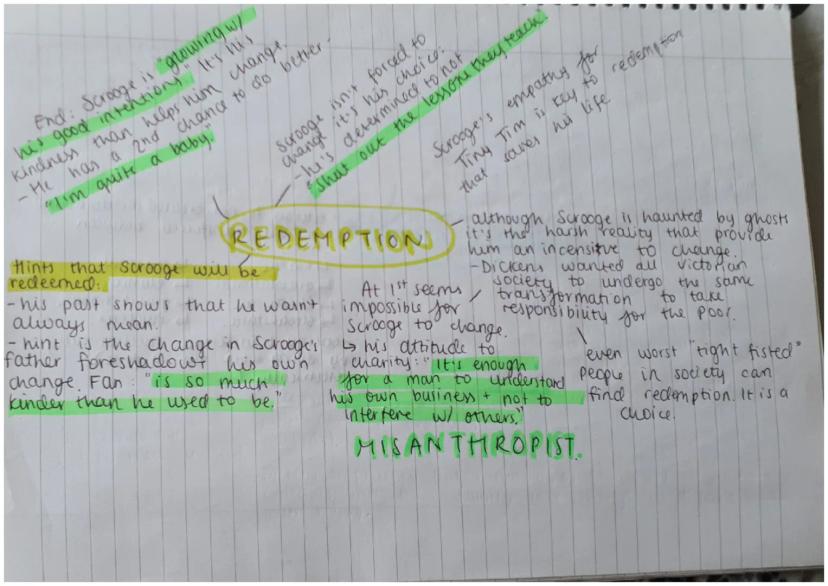 End: Scrooge is "glowing w/
his good intentions." It's his
kindness than helps him change.
- He has a 2nd chance to do better.
"I'm quite a baby."
Scrooge isn't forced to
change it's his choice:
- he's determined to not
"shut out the lessons they teach"
Scrooge's empathy for
Tiny Tim is key to redemption
that saves his life
REDEMPTION
- although Scrooge is haunted by ghosts
it's the harsh reality that provide
him an incensitive to change.
- Dickens wanted all Victorian
society to undergo the same
transformation to take
responsibility for the poor.
Hints that Scrooge will be
redeemed:
- his past shows that he wasn't
always mean.
- hint is the change in Scrooge's
father foreshadows his own
change. Fan: "is so much
kinder than he used to be."
At 1st seems
impossible for
Scrooge to change.
↳ his attitude to
charity: "It's enough
for a man to understand
his own business + not to
interfere w/ others."
MISANTHROPIST.
even worst "tight fisted"
people in society can
find redemption. It is a
choice.